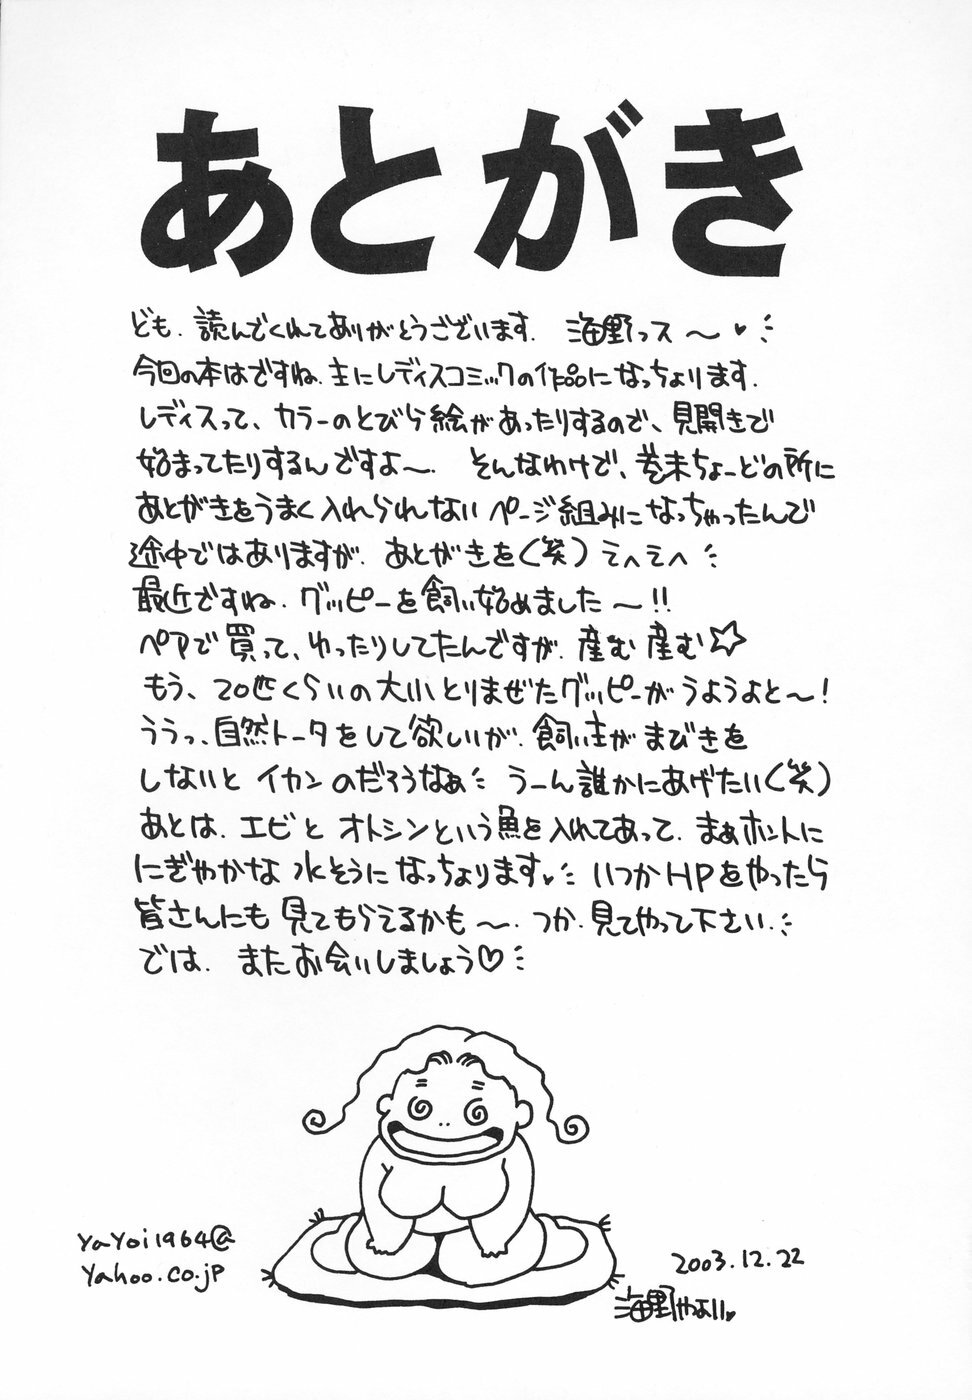 あとがき
ども．読んでくれてありがとうございます．海野っス～♥
今回の本はですね．主にレディスコミックの作品になっちょります．
レディスって、カラーのとびら絵があったりするので、見開きで
始まってたりするんですよ～．そんなわけで、巻末ちょーどの所に
あとがきをうまく入れられないページ組みになっちゃったんで
途中ではありますが．あとがきを（笑）えへえへ
最近ですね．グッピーを飼い始めました～!!
ペアで買って、ゆったりしてたんですが．産む産む☆
もう、20匹くらいの大小とりまぜたグッピーがうようよと～!
ううっ、自然トータをして欲しいが．飼い主がまびきを
しないとイカンのだろうなぁ うーん誰かにあげたい（笑）
あとは．エビとオトシンという魚を入れてあって．まぁホントに
にぎやかな水そうになっちょります♥ いつかHPをやったら
皆さんにも見てもらえるかも～．つか．見てやって下さい．
では．またお会いしましょう♡
YaYoi1964@
Yahoo.co.jp
2003.12.22
海野やよい♥